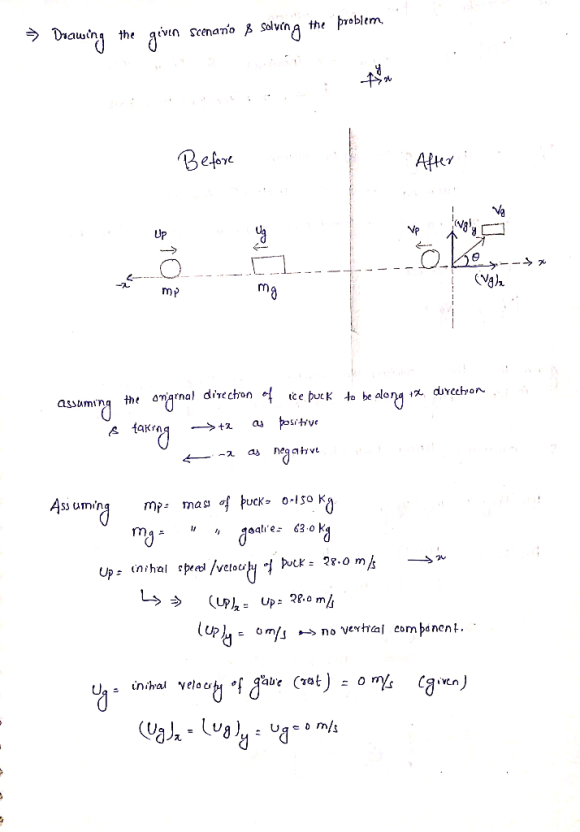 ⇒ Drawing the given scenario & solving the problem.
y
x
Before
After
Up
Ug
Vp
(Vg)y
Vg
θ
-x
x
mp
mg
(Vg)x
assuming the original direction of ice puck to be along +x direction
& taking → +x as positive
← -x as negative
Assuming mp = mass of puck = 0.150 kg
mg = " " goalie = 63.0 kg
Up = initial speed/velocity of puck = 28.0 m/s → x
↳ ⇒ (Up)x = Up = 28.0 m/s
(Up)y = 0 m/s ↔ no vertical component.
Ug = initial velocity of goalie (rest) = 0 m/s (given)
(Ug)x = (Ug)y = Ug = 0 m/s